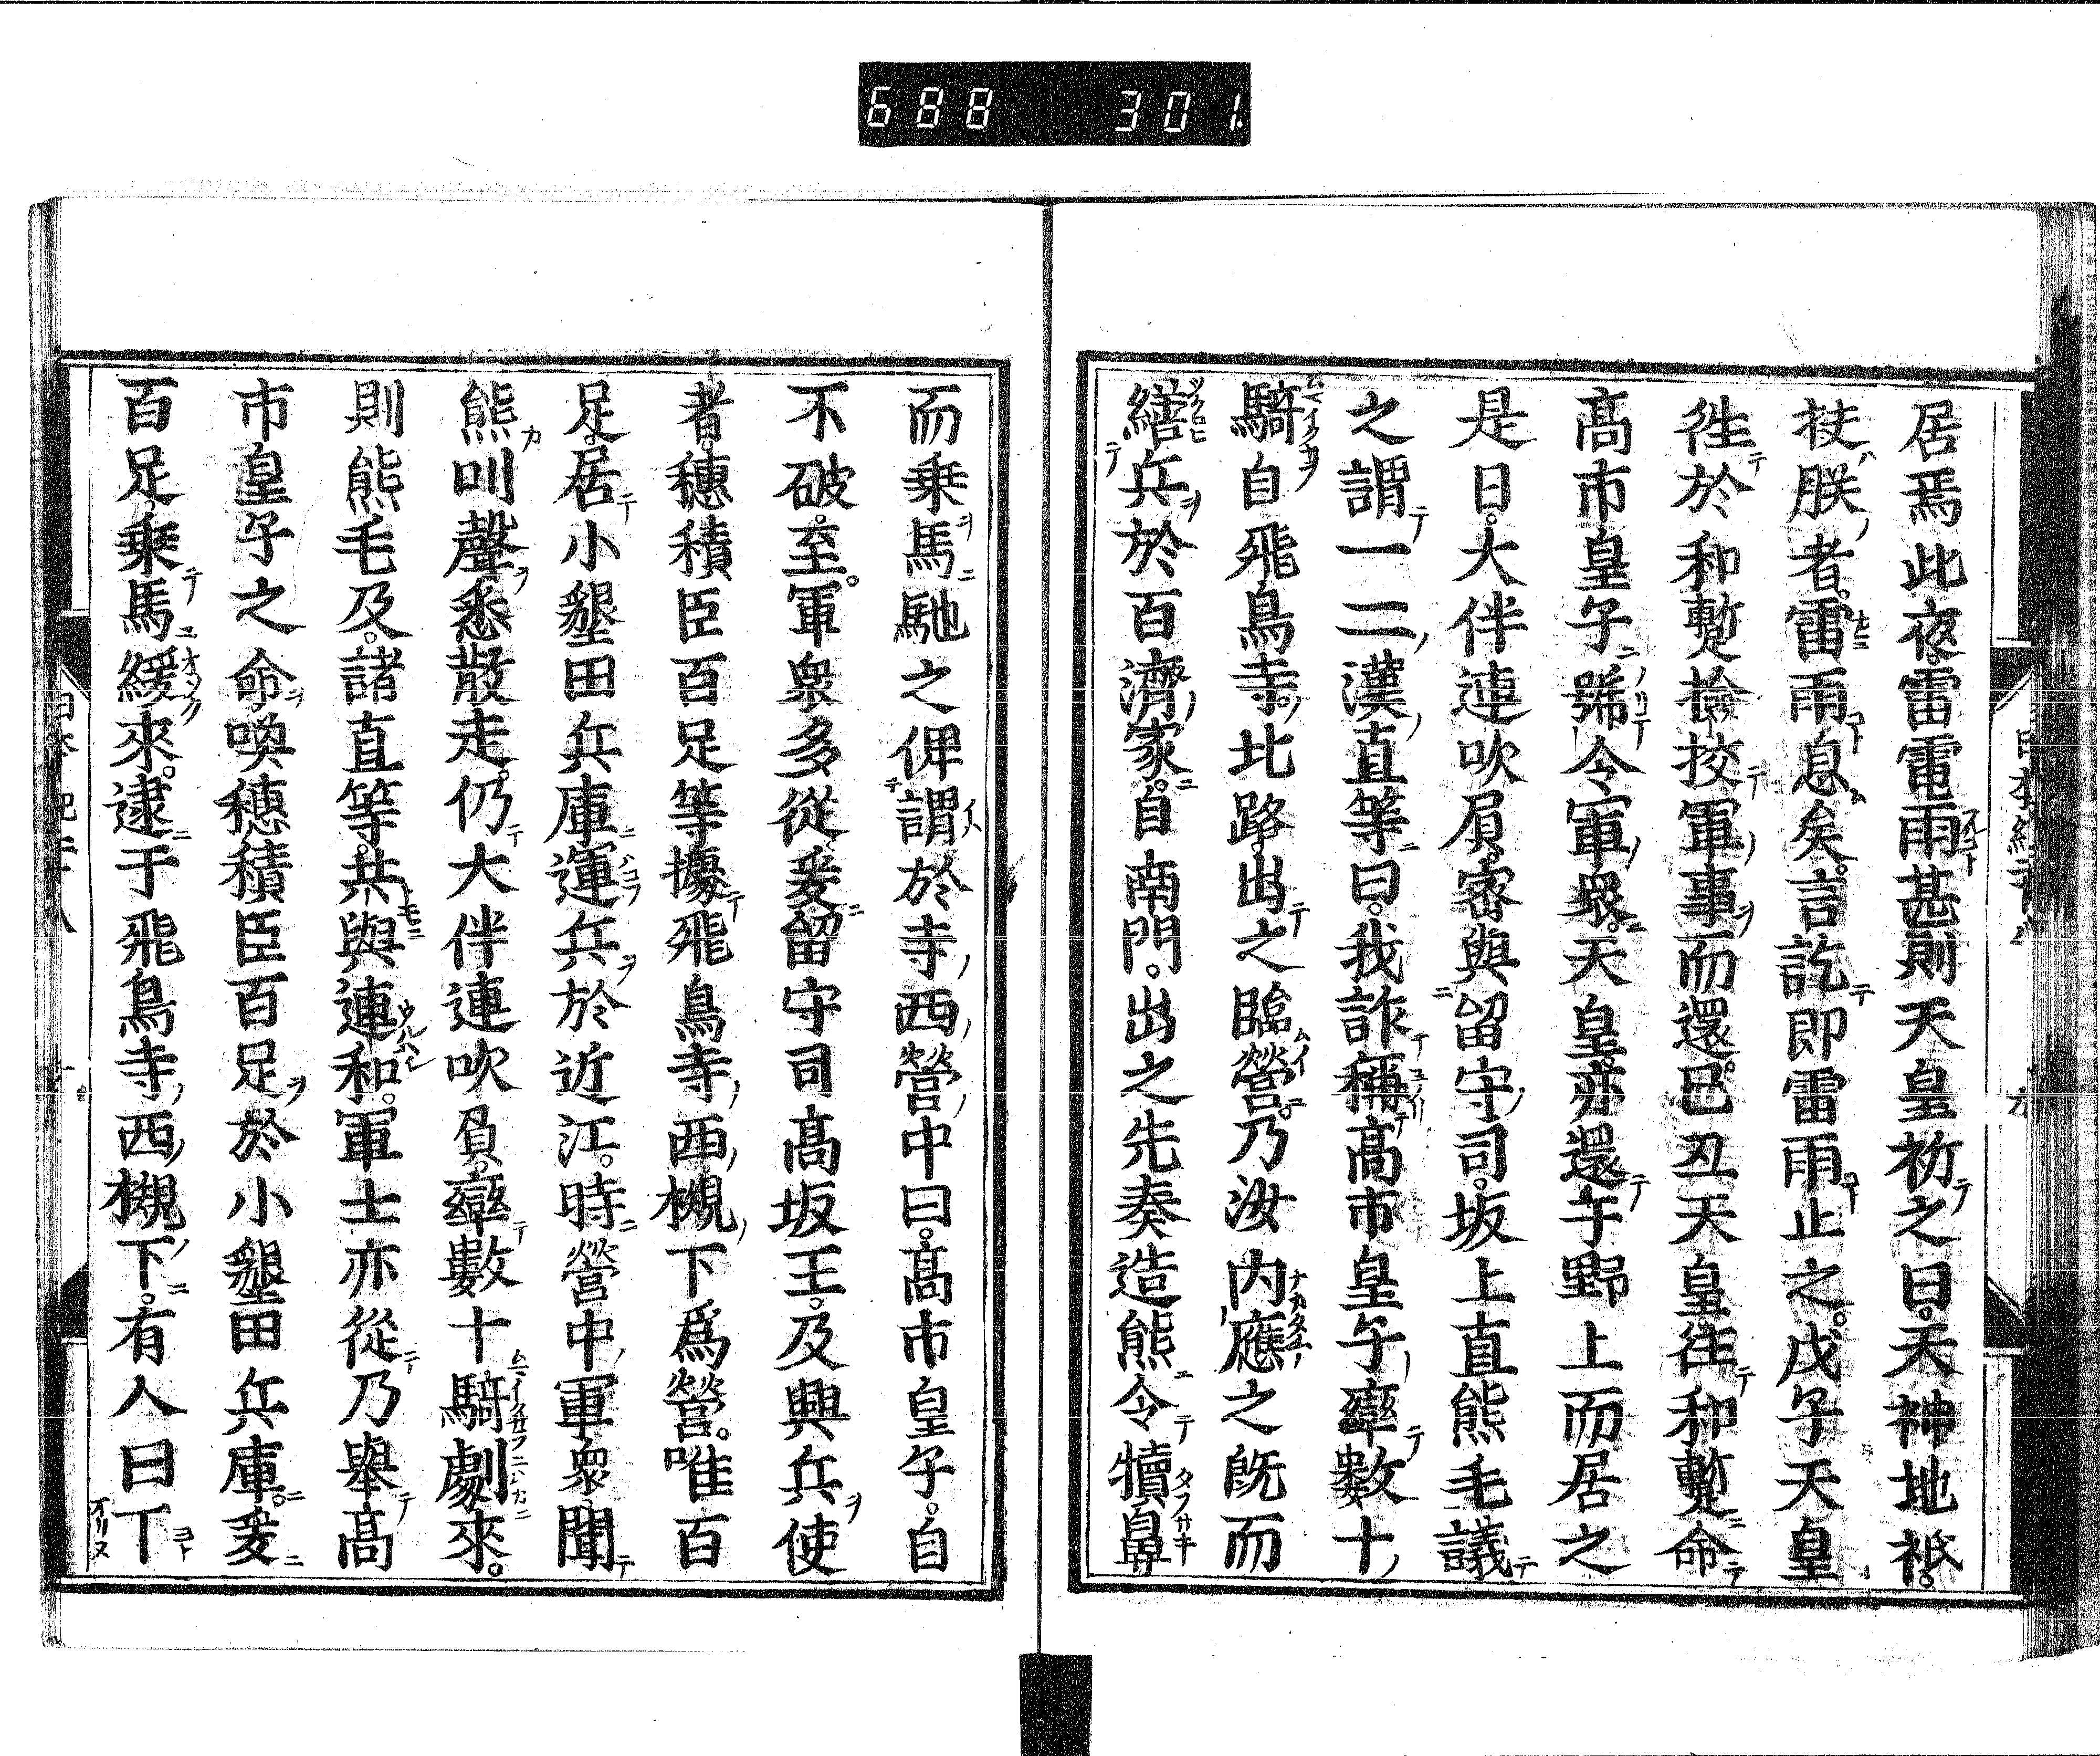 688 301
居焉此夜雷電雨甚則天皇祈之曰天神地祇
扶朕者雷雨息矣言訖即雷雨止之戊子天皇
徃於和蹔撿挍軍事而還已丑天皇往和蹔命
髙市皇子號令軍衆天皇亦還于野上而居之
是日大伴連吹屓宻與留守司坂上直熊毛議
之謂一二漢直等曰我詐稱髙市皇子率數十
騎自飛鳥寺北路出之臨營乃汝内應之既而
繕兵於百濟家自南門出之先奏造熊令犢鼻
而乗馬馳之俾謂於寺西營中曰髙市皇子自
不破至軍衆多從爰留守司髙坂王及興兵使
者穗積臣百足等據飛鳥寺西槻下爲營唯百
足居小墾田兵庫運兵於近江時營中軍衆聞
熊叫聲悉散走仍大伴連吹負率數十騎劇來
則熊毛及諸直等共與連和軍士亦從乃舉髙
市皇子之命喚穗積臣百足於小墾田兵庫爰
百足乗馬緩來逮于飛鳥寺西槻下有人曰下